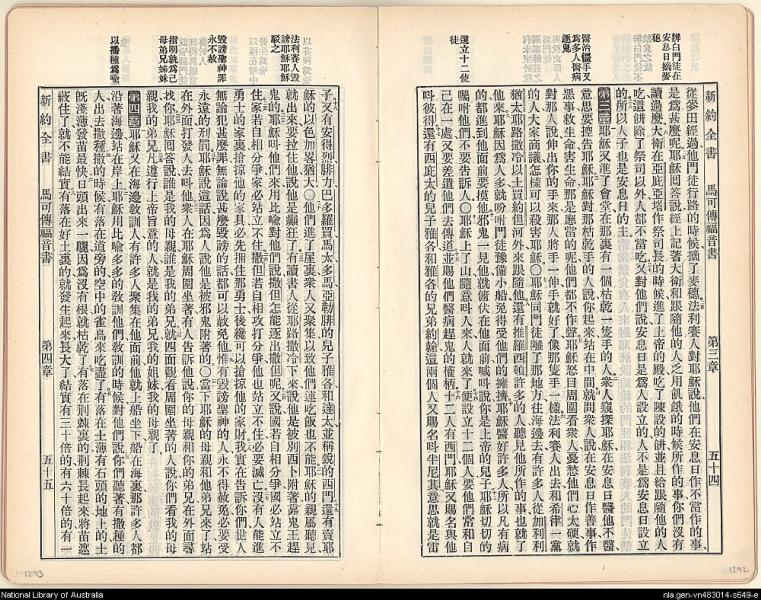 新約全書 馬可傳福音書 第三章 五十四
辨白門徒在安息日摘麥穗
選立十二使徒
從麥田經過他門徒行路的時候摘了麥穗法利賽人對耶穌說他們在安息日作不當作的事
是爲甚麽呢耶穌回答說經上記著大衞和跟隨他的人之用飢餓的時候所作的事你們沒有
讀過麽大衞在亞庇亞塔作祭司長的時候進了上帝的殿吃了陳設的餅並且給跟隨他的人
吃這餅除了祭司以外都不當吃又對他們說安息日是爲人設立的人不是爲安息日設立
的所以人子也是安息日的主
第三章耶穌又進了會堂在那裏有一個枯乾一隻手的人衆人窺探耶穌在安息日醫他不醫
意思要控告耶穌耶穌對那枯乾手的人說你起來站在中間就問衆人說在安息日作善事作
惡事救生命害生命那是應當的呢他們都不作聲耶穌怒目周圍看衆人憂愁他們心太硬就
對那人說伸出你的手來那人將手一伸手就好了像那隻手一樣法利賽人出去和希律一黨
的人大家商議怎樣可以殺害耶穌〇耶穌同門徒離了那地方往海邊去有許多人從加利利
猶太耶路撒冷以土買約但河外來跟隨他還有推羅西頓許多的人聽見他所作的事也就了
他來耶穌因爲人多就吩咐門徒豫備小船免得受他們的擁擠耶穌醫好許多人所以凡有病
的都進到他面前要摸他邪鬼一見他就俯伏在他面前喊叫說你是上帝的兒子耶穌切切的
囑咐他們不要吿訴人〇耶穌上了山隨意叫人來人就來了便設立十二個人要他們常和自
己在一處又要差遣他們去傳道並賜他們醫病趕鬼的權柄十二人有西門耶穌又賜名與他
叫彼得還有西庇太的兒子雅各和雅各的兄弟約翰這兩個人又賜名叫半尼其意思就是雷
法利賽人毀謗耶穌耶穌駁之
毀謗聖神罪永不赦
以播種爲喻
子又有安得烈腓力巴多羅買馬太多馬亞勒腓的兒子雅各和達太並稱銳的西門還有賣耶
穌的以色加畧猶大〇他們進了屋裏衆人又聚集以致他們連吃飯也不能耶穌的親屬聽見
就出來要拉住他說他是癲狂了有讀書人從耶路撒冷下來說他是被別西卜附著靠鬼王趕
鬼的耶穌叫他們來用比喻對他們說撒但怎能逐出撒但呢又說國若自相分爭國必站立不
住家若自相分爭家必站立不住撒但若自相攻打分爭他也站立不住必要滅亡沒有人能進
勇士的家裏搶掠他的家具必先捆住那勇士後纔可以搶掠他的家財我實在告訴你們世人
無論犯甚麽罪無論說甚麽毀謗的話都可以赦免他惟有毀謗聖神的人永不得赦免必要受
永遠的刑罰耶穌說這話因爲人說他是被邪鬼附著的〇當下耶穌的母親和他弟兄來了站
在外面打發人去叫他衆人在耶穌周圍坐著有人告訴他說你的母親和你的弟兄在外面尋
找你耶穌回答說誰是我的母親誰是我的弟兄就四面觀看周圍坐著的人說你們看我的母
親我的弟兄凡遵行上帝旨意的人就是我的弟兄我的姐妹我的母親了
第四章耶穌又在海邊敎訓人有許多人聚集在他面前他就上船坐下船在海裏那許多人都
沿著海邊站在岸上耶穌用比喻多多的敎訓他們敎訓的時候對他們說你們聽著有撒種的
人出去撒種撒的時候有落在道旁的空中的雀鳥來吃盡了有落在土薄有石頭的地上的土
旣淺薄發苗最快日頭出來一曬因爲沒有根就枯乾了有落在荆棘裏的荆棘長起來將苗遮
蔽住了就不能結實有落在好土裏的就發生起來長大了結實有三十倍的有六十倍的有一
新約全書 馬可傳福音書 第四章 五十五
1293
1292
National Library of Australia
nla.gen-vn483014-s649-e